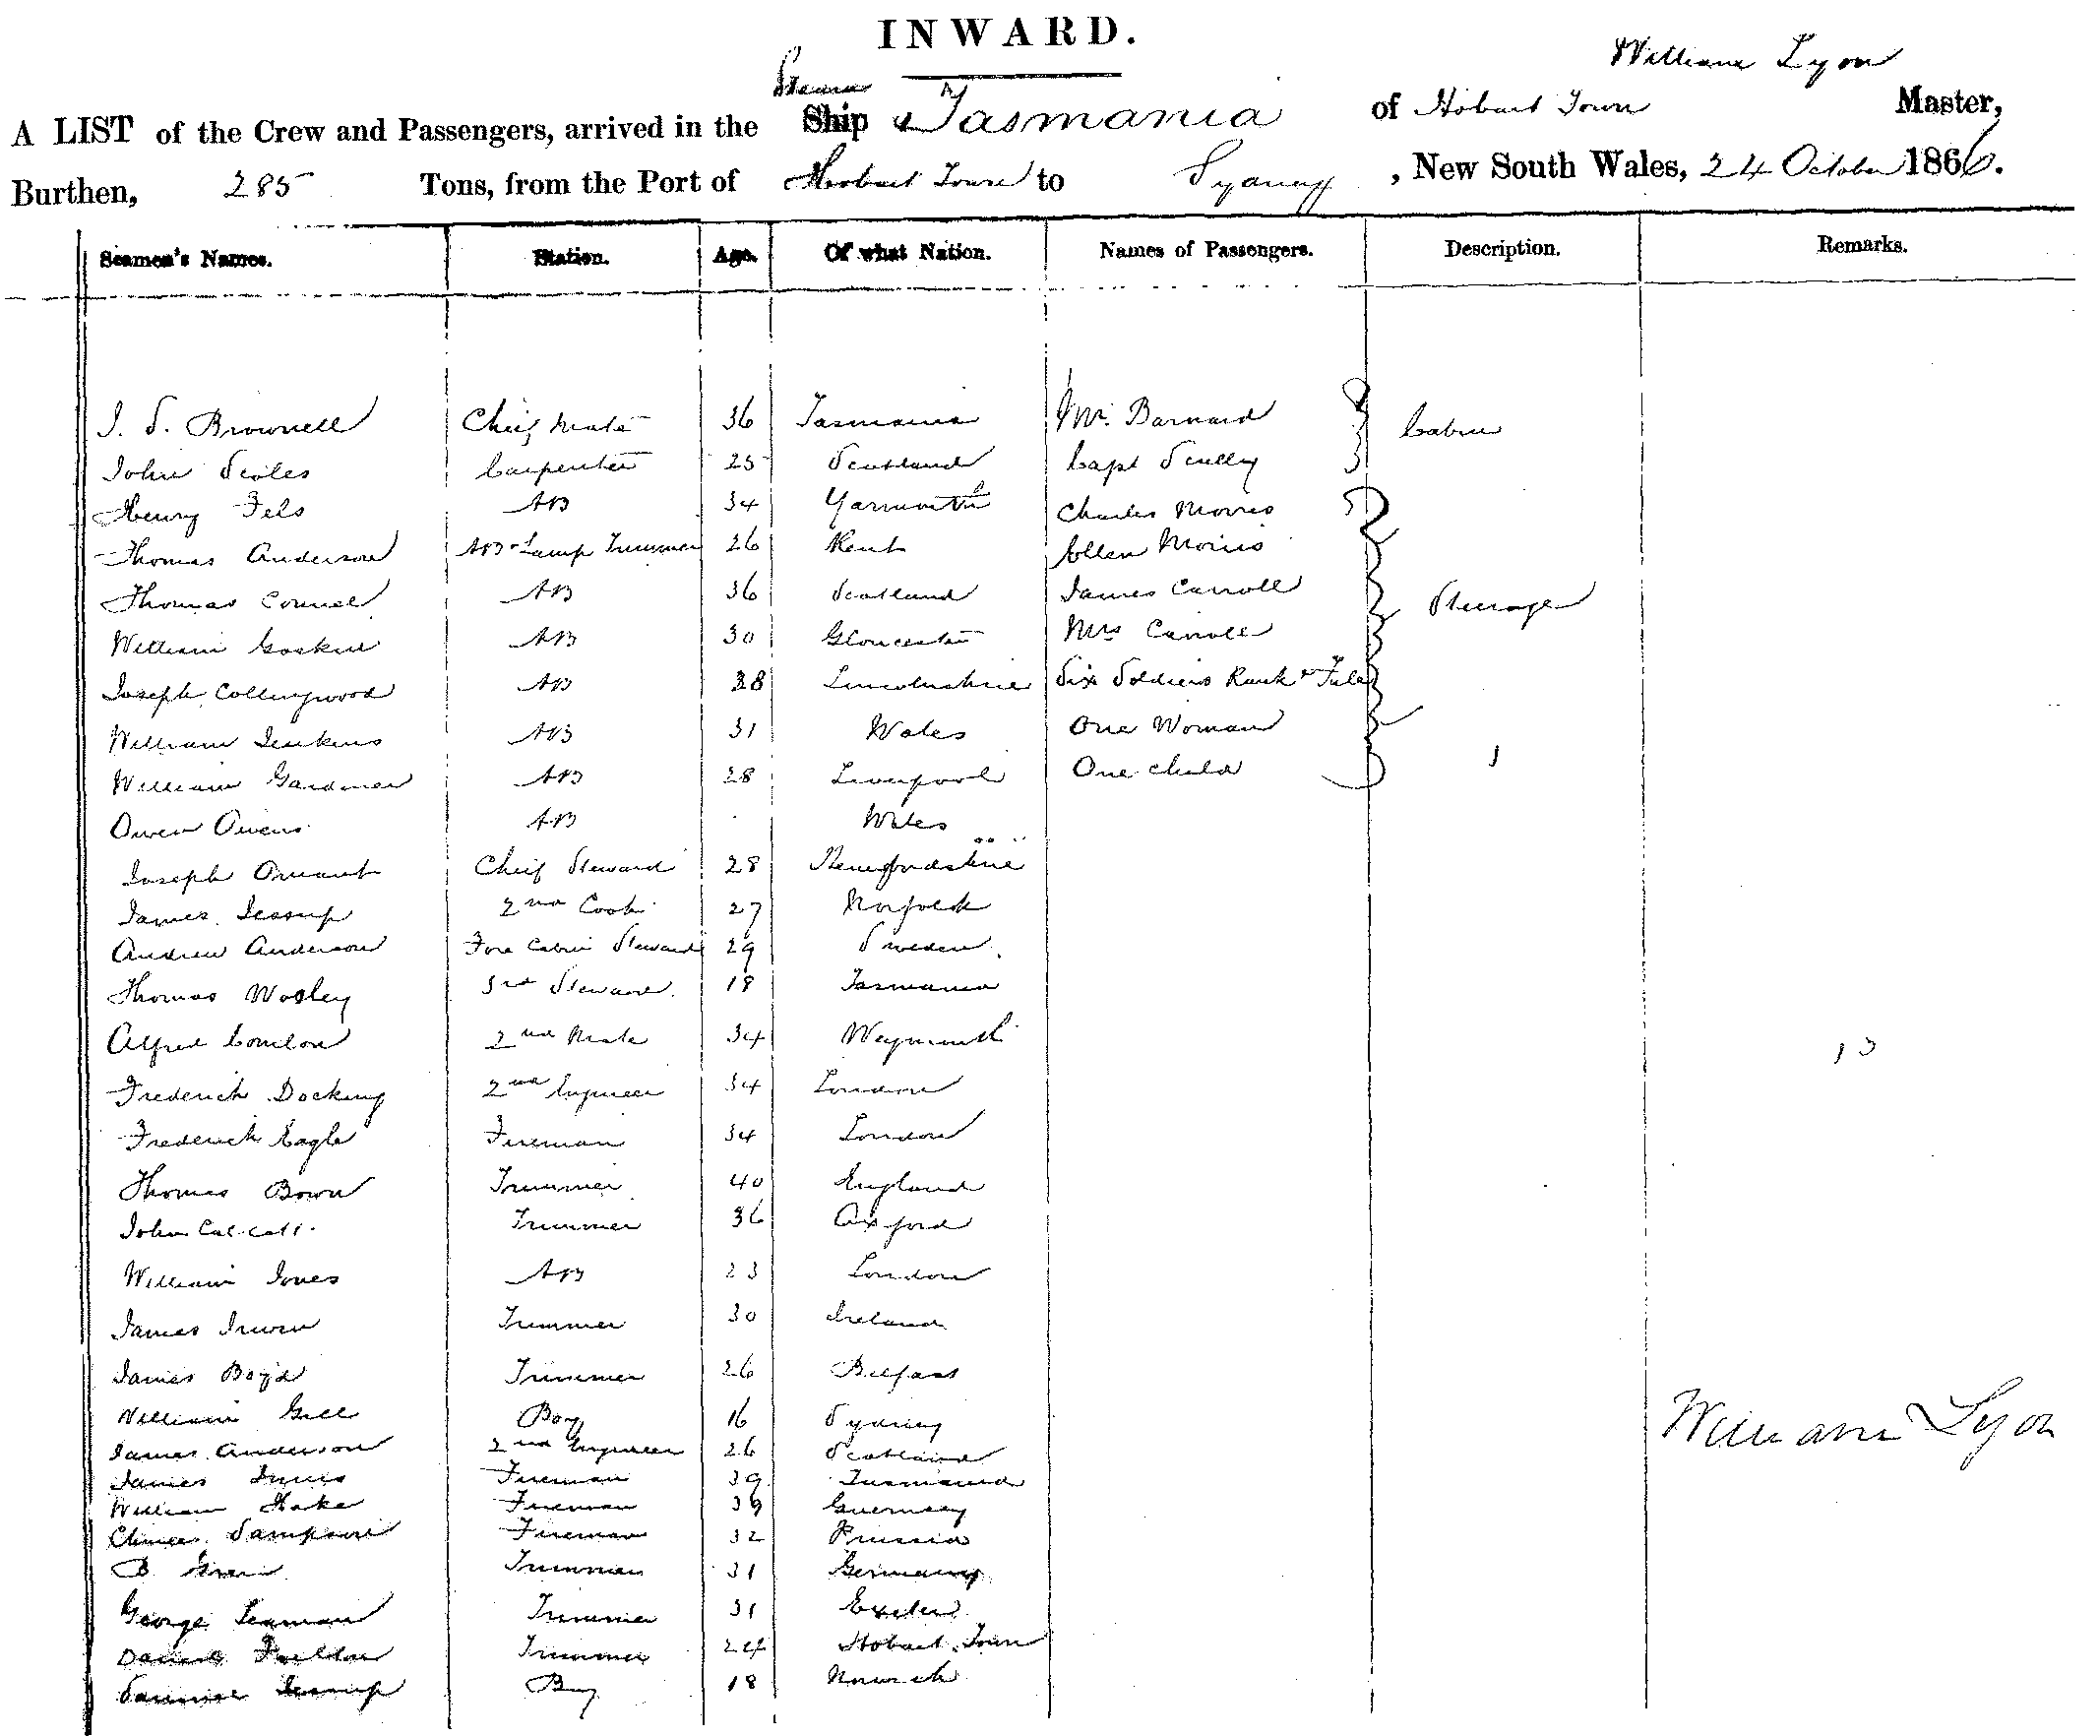 INWARD.
William Lyon
Steam
A LIST of the Crew and Passengers, arrived in the Ship Tasmania of Hobart Town Master,
Burthen, 285 Tons, from the Port of Hobart Town to Sydney, New South Wales, 24 October 1866.
Seamen's Names. Station. Age. Of what Nation. Names of Passengers. Description. Remarks.
J. S. Brownell Chief Mate 36 Tasmania Mr. Barnard Cabin
John Scoles Carpenter 25 Scotland Capt Scully
Henry Fels AB 34 Yarmouth Charles Morris
Thomas Anderson AB & Lamp Trimmer 26 Kent Ellen Morris
Thomas Connel AB 36 Scotland James Carroll Steerage
William Gaskin AB 30 Gloucester Mrs Carroll
Joseph Collingwood AB 38 Lincolnshire Six Soldiers Rank & File
William Jenkins AB 31 Wales One Woman
William Gardiner AB 28 Liverpool One Child
Owen Owens AB Wales
Joseph Chief Steward 28
James Jessup 2nd Cook 27 Norfolk
Andrew Anderson Fore Cabin Steward 29 Sweden
Thomas Wooley 3rd Steward 18 Tasmania
Alfred 2nd Mate 34 Weymouth
Frederick Docking 2nd Engineer 34 London
Frederick Eagle Fireman 34 London
Thomas Bown Trimmer 40 England
John Trimmer 36 Oxford
William Jones AB 23 London
James Irwin Trimmer 30 Ireland
James Boyd Trimmer 26 Belfast
William Gill Boy 16 Sydney
William Lyon
James Anderson 2nd Engineer 26 Scotland
James Innis Fireman 39 Tasmania
William Hake Fireman 39 Guernsey
Sampson Fireman 32 Prussia
B. Trimmer 31 Germany
George Seaman Trimmer 31 Exeter
Fulton Trimmer 24 Hobart Town
Jessup Boy 18 Norwich